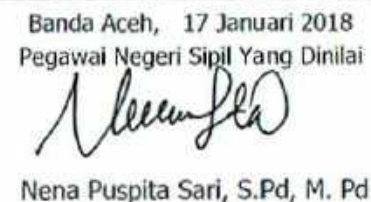 Banda Aceh, 17 Januari 2018
Pegawai Negeri Sipil Yang Dinilai
Nena Puspita Sari, S.Pd, M. Pd